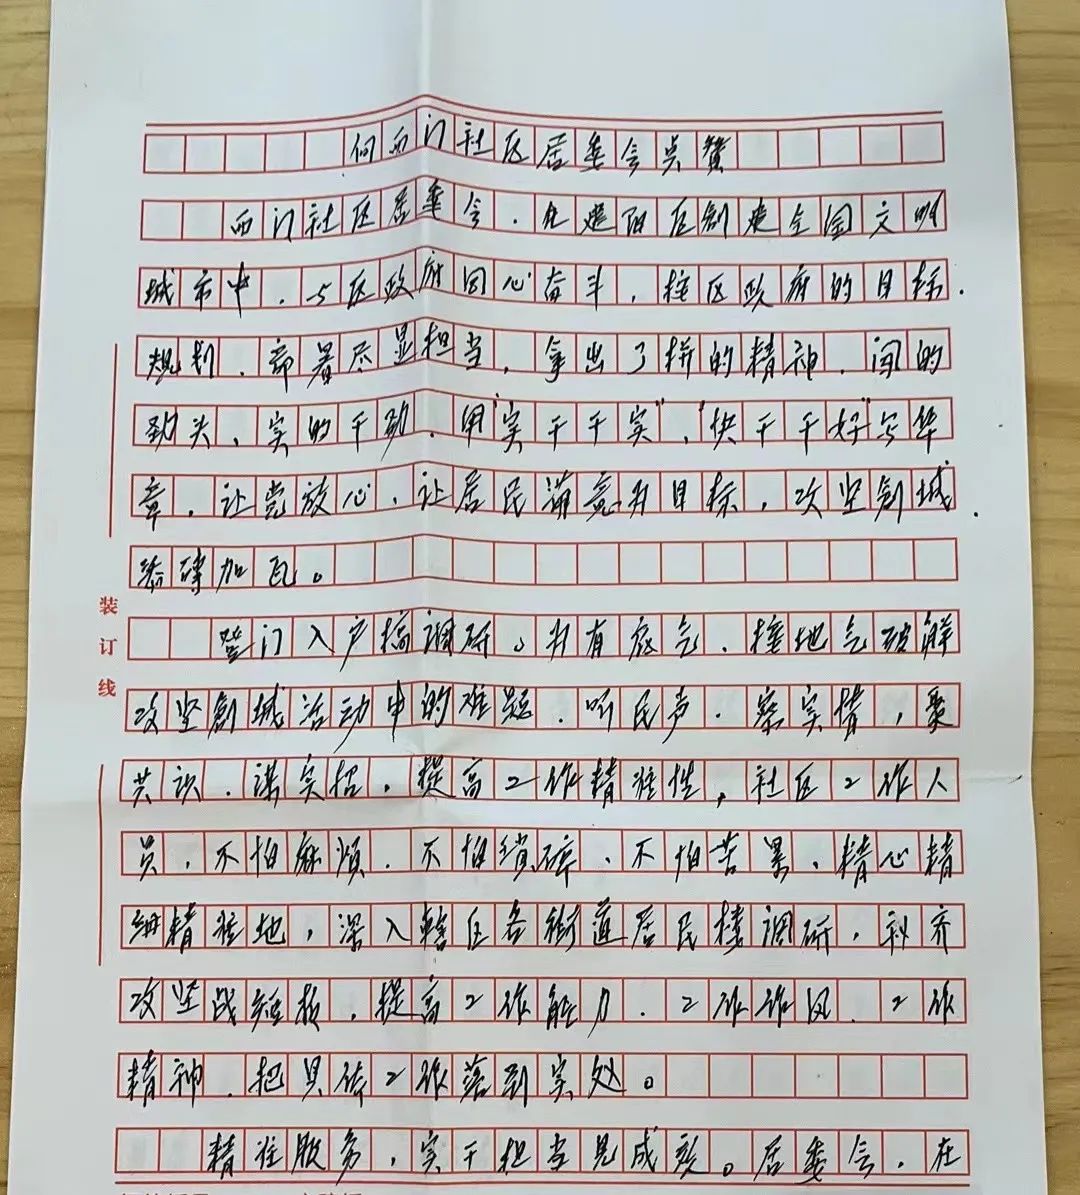 向西门社区居委会点赞
西门社区居委会，在建阳区创建全国文明
城市中，与区政府同心奋斗，按区政府的目标、
规划、部署尽显担当，拿出了拼的精神、闯的
劲头、实的干劲、用"实干干实"、"快干干好"写华
章，让党放心、让居民满意为目标，攻坚创城
添砖加瓦。
登门入户搞调研。为有底气、接地气破解
攻坚创城活动中的难题、听民声、察实情，聚
共识、谋实招，提高工作精准性，社区工作人
员，不怕麻烦、不怕琐碎、不怕苦累，精心精
细精准地，深入辖区各街道居民楼调研，补齐
攻坚战短板，提高工作能力、工作作风、工作
精神，把具体工作落到实处。
精准服务，实干担当见成效。居委会，在
装订线